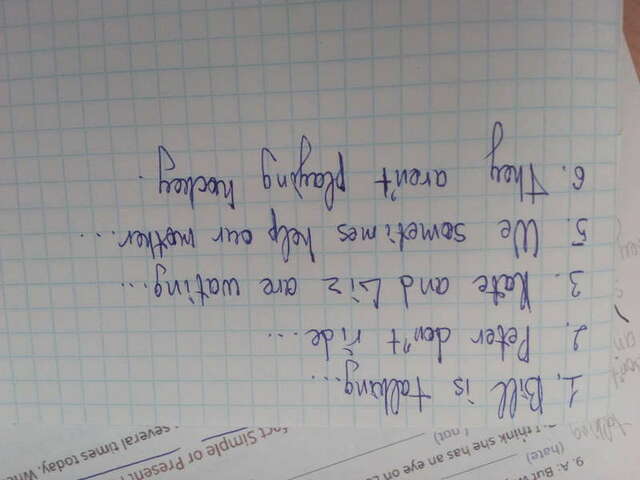 9. A: But
(hate)
I think she has an eye on
(not)
fect Simple or Present
several times today. Whe
1. Bill is talking...
2. Peter den't ride...
3. Kate and Liz are wating...
5. We sometimes help our mother...
6. They aren't playing hockey.